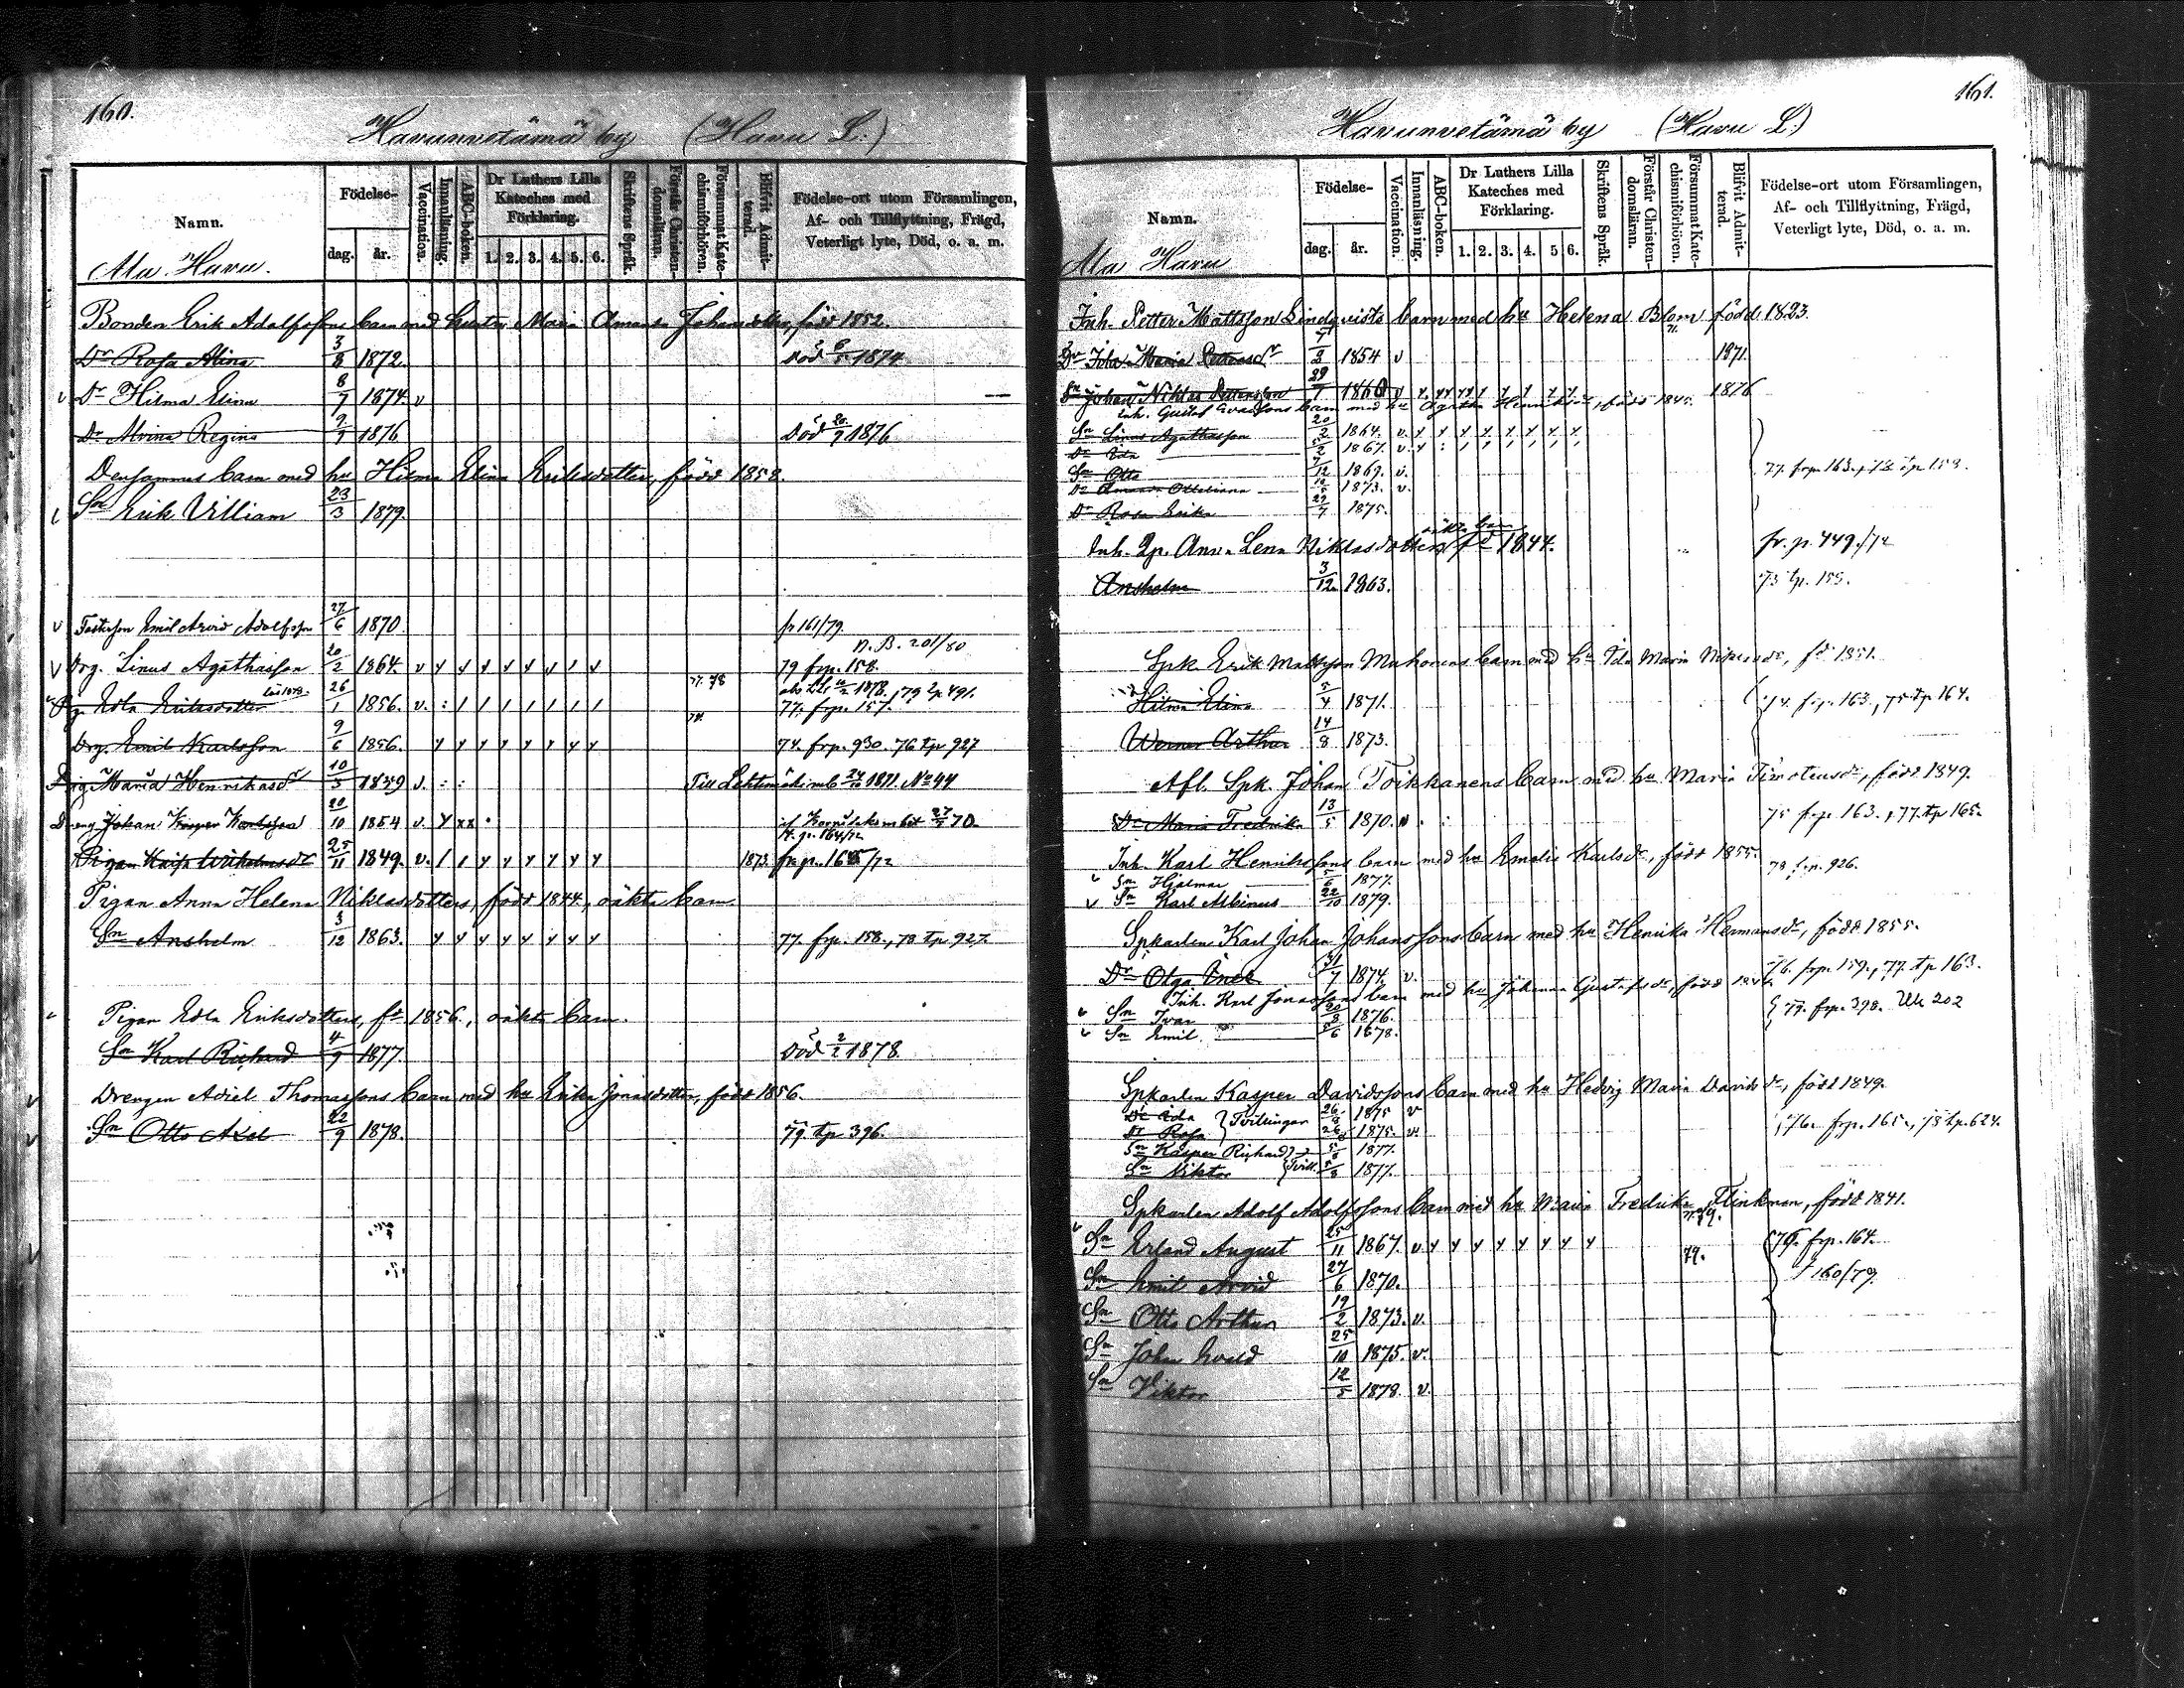 160.
Havunvetämä by (Havu L.)
Namn. Födelse- dag. år. Vaccination. Innanläsning. ABC-boken. Dr Luthers Lilla Kateches med Förklaring. 1. 2. 3. 4. 5. 6. Skriftens Språk. Förstår Christendomsläran. Försummat Katechismiförhören. Blifvit Admitterad. Födelse-ort utom Församlingen, Af- och Tillflyttning, Frägd, Veterligt lyte, Död, o. a. m.
Ala Havu.
Bonden Erik Adolfssons barn med hustru Maria Amanda Johansdotter, född 1852.
Dr Rosa Alina 3/8 1872. död 1874
v Dr Hilma Elina 8/7 1874. v
Dr Alvina Regina 9/7 1876 död 20/9 1876
Densammes barn med hu Hilma Elina Eriksdotter, född 1858.
Sn Erik Villiam 23/3 1879.
v Emil Arvid Adolfsson 27/6 1870. fr 161/79.
N. B. 201/80
v Drg. Linus Agathasson 20/2 1864. v y y y y y y 1 y 79 frp. 158.
Edla Eriksdotter 26/1 1856. v. : / / / / / / / 77. 78 1878. 79 tp 491.
77. frp. 157.
Drg. Emil Karlsson 9/6 1856. y y y y y y y y 74. frp. 930. 76 tp 927
Maria Henriksdr 10/3 1849 v. : : Till Lehtimäki mb 1871. No 44
Dreng Johan Kasper Karlsson 20/10 1854 v. y xx 70.
Pigan Kaisa Wilhelmsdr 25/11 1849. v. / / y y y y y y 1873. frp. 165/72
Pigan Anna Helena Niklasdotters, född 1844, oäkta barn
Sn Anshelm 3/12 1863. y y y y y y y y 77. frp. 158., 78 tp 927.
Pigan Edla Eriksdotters, fd 1856., oäkta barn.
Sn Karl Richard 4/9 1877. död 2/2 1878.
Drengen Adiel Thomassons barn med hu Erika Jonasdotter, född 1856.
Sn Otto Axel 22/9 1878. 79 tp 396.
161.
Havunvetämä by (Havu L.)
Namn. Födelse- dag. år. Vaccination. Innanläsning. ABC-boken. Dr Luthers Lilla Kateches med Förklaring. 1. 2. 3. 4. 5 6. Skriftens Språk. Förstår Christendomsläran. Försummat Katechismiförhören. Blifvit Admitterad. Födelse-ort utom Församlingen, Af- och Tillflyttning, Frägd, Veterligt lyte, Död, o. a. m.
Ala Havu
Inh. Petter Mattsson Lindqvists barn med hu Helena Blom född 1823.
Dr Maria Pettersdr 1854 v 1871.
Sn Johan Niklas Pettersson 29/7 1860 v 1876
Inh. Gustaf barn med hu Agatha Henriksdr, född 1840.
Sn Linus Agathasson 20/2 1864. v. y y y y y y y y
Dr Ida 5/2 1867. v.
Sn Otto 7/12 1869. v. 77. frp 163., 78 tp 158.
Dr Amanda 1873. v.
Dr Rosa Erika 29/7 1875.
Inh. Qp. Anna Lena Niklasdotters oäkta barn fd 1844. fr. p. 449./72
Anshelm 3/12 1863. 73 tp. 155.
Spk. Erik Mattsson Muhonens barn med hu Ida Maria dr, fd 1851.
Hilma Elina 5/4 1871. 74. frp. 163., 75 tp 164.
Werner Arthur 14/8 1873.
Afl. Spk. Johan Toikkanens barn med hu Maria Timoteusdr, född 1849.
Dr Maria Fredrika 13/5 1870. 75 frp. 163., 77. tp 165.
Inh. Karl Henrikssons barn med hu Emelie Karlsdr, född 1855. 78 frp. 926.
v Sn Hjalmar 5/6 1877.
v Sn Karl Albinus 22/10 1879.
Spkarlen Karl Johan Johanssons barn med hu Henrika Hermansdr, född 1855.
Dr Olga 31/7 1874. v. 76. frp 159., 77. tp 163.
Inh. Karl Jonassons barn med hu Johanna Gustafsdr, född
v Sn Ivar 20/8 1876. 77. frp. 398. Utl 202
v Sn Emil 5/6 1878.
Spkarlen Kasper Davidssons barn med hu Hedvig Maria Davidsdr, född 1849.
Dr Ida } Tvillingar 26 1875 v
Dr Rosa 26 1875. v. 76. frp. 165., 78 tp. 624.
Sn Kasper Richard 5/8 1877.
Sn Viktor Tvill. 5/8 1877.
Spkarlen Adolf Adolfssons barn med hu Maria Fredrika Flinkman, född 1841.
v Sn Erland August 25/11 1867. v y y y y y y y y 79. 76. frp. 164.
Sn Emil Arvid 27/6 1870. 79. 160/79.
Sn Otto Arthur 19/2 1873. v.
Sn Johan Evald 25/10 1875. v.
Sn Viktor 12/5 1878. v.